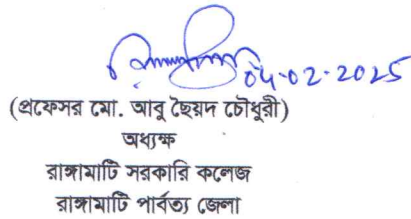 04-02-2025
(প্রফেসর মো. আবু ছৈয়দ চৌধুরী)
অধ্যক্ষ
রাঙ্গামাটি সরকারি কলেজ
রাঙ্গামাটি পার্বত্য জেলা